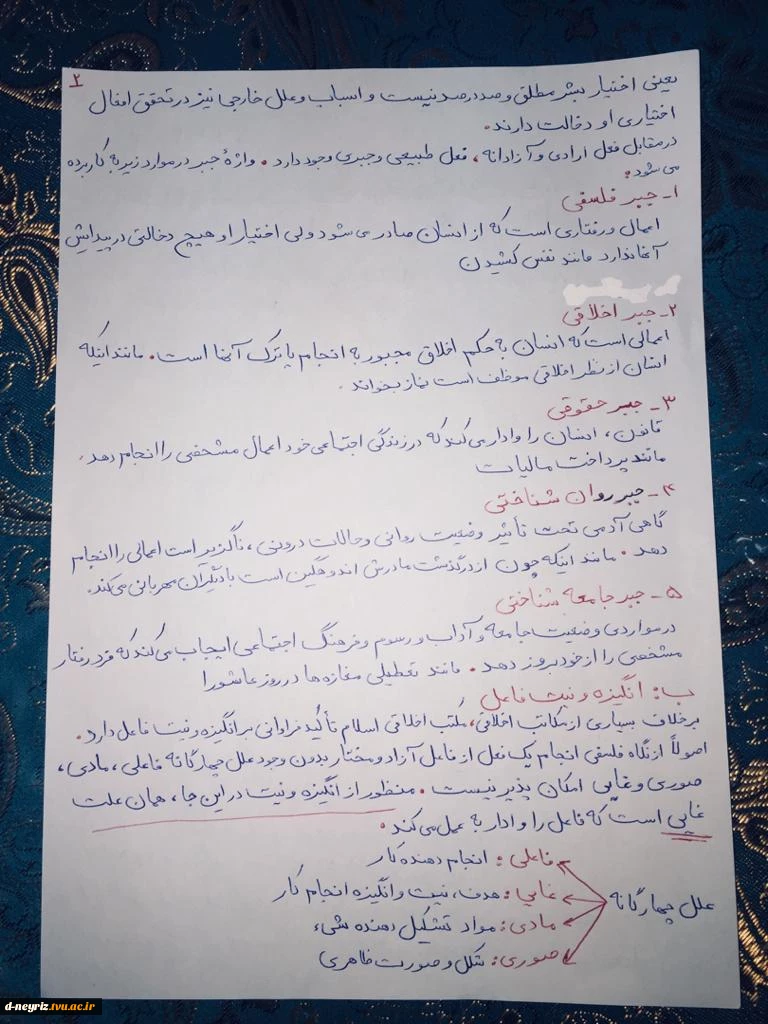 ۲
یعنی اختیار بشر مطلق و صددرصد نیست و اسباب و علل خارجی نیز در تحقق افعال
اختیاری او دخالت دارند.
در مقابل فعل ارادی و آزادانه، فعل طبیعی و جبری وجود دارد. واژهٔ جبر در موارد زیر به کار برده
می شود:
۱- جبر فلسفی
اعمال و رفتاری است که از انسان صادر می شود ولی اختیار او هیچ دخالتی در پیدایش
آنها ندارد مانند نفس کشیدن
۲- جبر اخلاقی
اعمالی است که انسان به حکم اخلاق مجبور به انجام یا ترک آنها است. مانند اینکه
انسان از نظر اخلاقی موظف است نماز بخواند.
۳- جبر حقوقی
قانون، انسان را وادار می کند که در زندگی اجتماعی خود اعمال مشخصی را انجام دهد.
مانند پرداخت مالیات
۴- جبر روان شناختی
گاهی آدمی تحت تأثیر وضعیت روانی و حالات درونی، ناگزیر است اعمالی را انجام
دهد. مانند اینکه چون از درگذشت مادرش اندوهگین است با دیگران مهربانی می کند.
۵- جبر جامعه شناختی
در مواردی وضعیت جامعه و آداب و رسوم و فرهنگ اجتماعی ایجاب می کند که فرد رفتار
مشخصی را از خود بروز دهد. مانند تعطیلی مغازه ها در روز عاشورا
ب: انگیزه و نیت فاعل
برخلاف بسیاری از مکاتب اخلاقی، مکتب اخلاقی اسلام تأکید فراوانی بر انگیزه و نیت فاعل دارد.
اصولاً از نگاه فلسفی انجام یک فعل از فاعل آزاد و مختار بدون وجود علل چهارگانه فاعلی، مادی،
صوری و غایی امکان پذیر نیست. منظور از انگیزه و نیت در این جا، همان علت
غایی است که فاعل را وادار به عمل می کند.
علل چهارگانه
فاعلی: انجام دهنده کار
غایی: هدف، نیت و انگیزه انجام کار
مادی: مواد تشکیل دهنده شیء
صوری: شکل و صورت ظاهری
d-neyriz.tvu.ac.ir